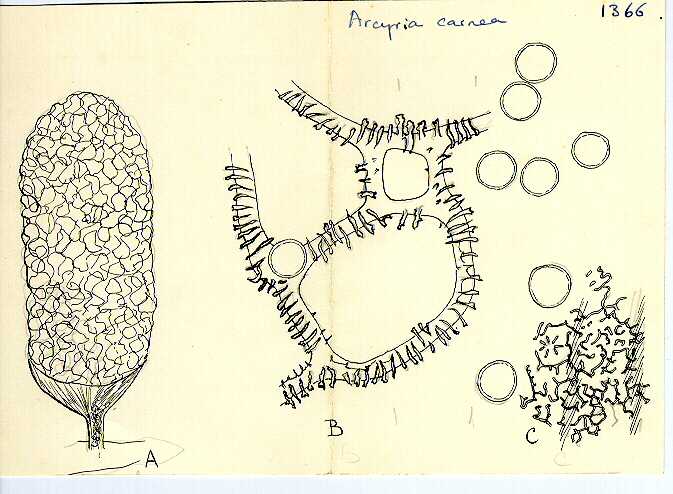 Arcyria carnea
1366.
A
B
C